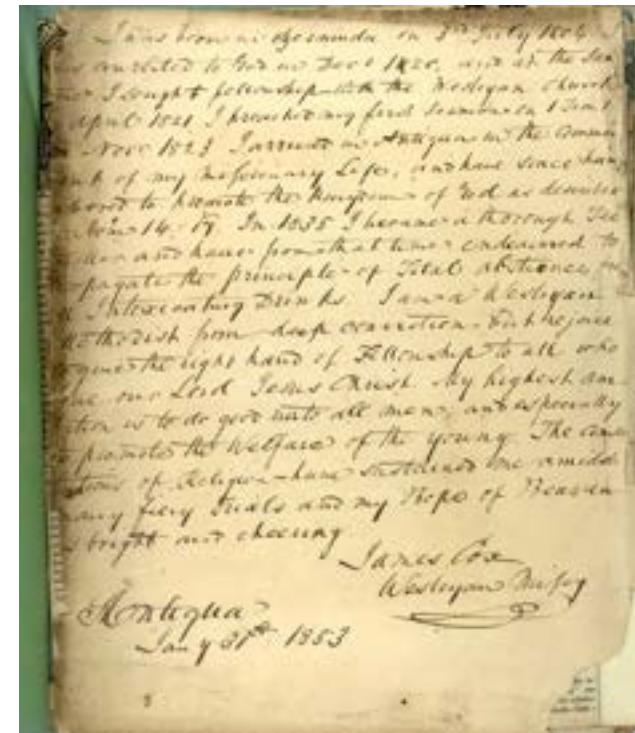 I was born in Bermuda on 3rd July 1804. I
was converted to God in Decr 1820, and at the same
time I sought fellowship with the Wesleyan Church
April 1821 I preached my first Sermon on 1 Tim 1
Novr 1823 I arrived in Antigua in the Commence
ment of my Missionary Life, and have since then
labored to promote the Kingdom of God as described
Rom. 14. 17. In 1835 I became a thorough Tee
and have from that time endeavored to
propagate the principle of Total abstinence from
all Intoxicating Drinks. I am a Wesleyan
Methodist from deep conviction. But rejoice
to give the right hand of Fellowship to all who
love our Lord Jesus Christ. My highest am
bition is to do good unto all men, and especially
to promote the Welfare of the young. The conso
lations of Religion have sustained me amidst
many fiery trials and my Hope of Heaven
is bright and cheering.
James Cox
Wesleyan Missy
Antigua
Jany 31st 1853